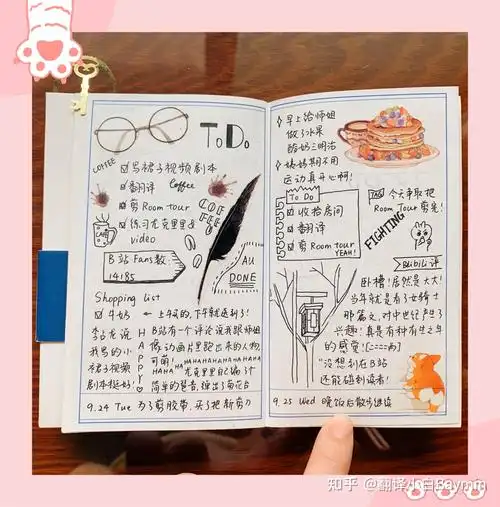 ToDo
COFFEE
写裙子视频剧本
翻译
Coffee
剪 Room tour
练习尤克里里&
video
COFFEE
B站Fans数:
14185
AU
DONE
Shopping list
牛奶 ← 上午买的,下午就送到了!
李站龙说
我写的小
裙子视频
剧本挺好!
HAPPY!
B站有个评论说我跟师姐
像动画片里跑出来的人物,
可萌!HAHAHAHAHAHAHAHA
尤克里里自编了个
简单的琶音,弹出了菊花台
9.24 Tue 为了剪胶带,买了把新剪刀
早上给师姐
做了水果
酸奶三明治
姨妈期不用
运动真开心啊!
To Do
收拾房间
翻译
剪 Room tour
YEAH!
TAG 今天争取把
Room Tour剪完!
FIGHTING
Bilibili评
卧槽!居然是太太!
当年就是看了女骑士
那篇文,对中世纪产生了
兴趣!真是有种有生之年
的感觉!
"没想到在B站
还能碰到读者!
9.25 Wed 晚饭后散步继续
知乎 @翻译小白Baymin